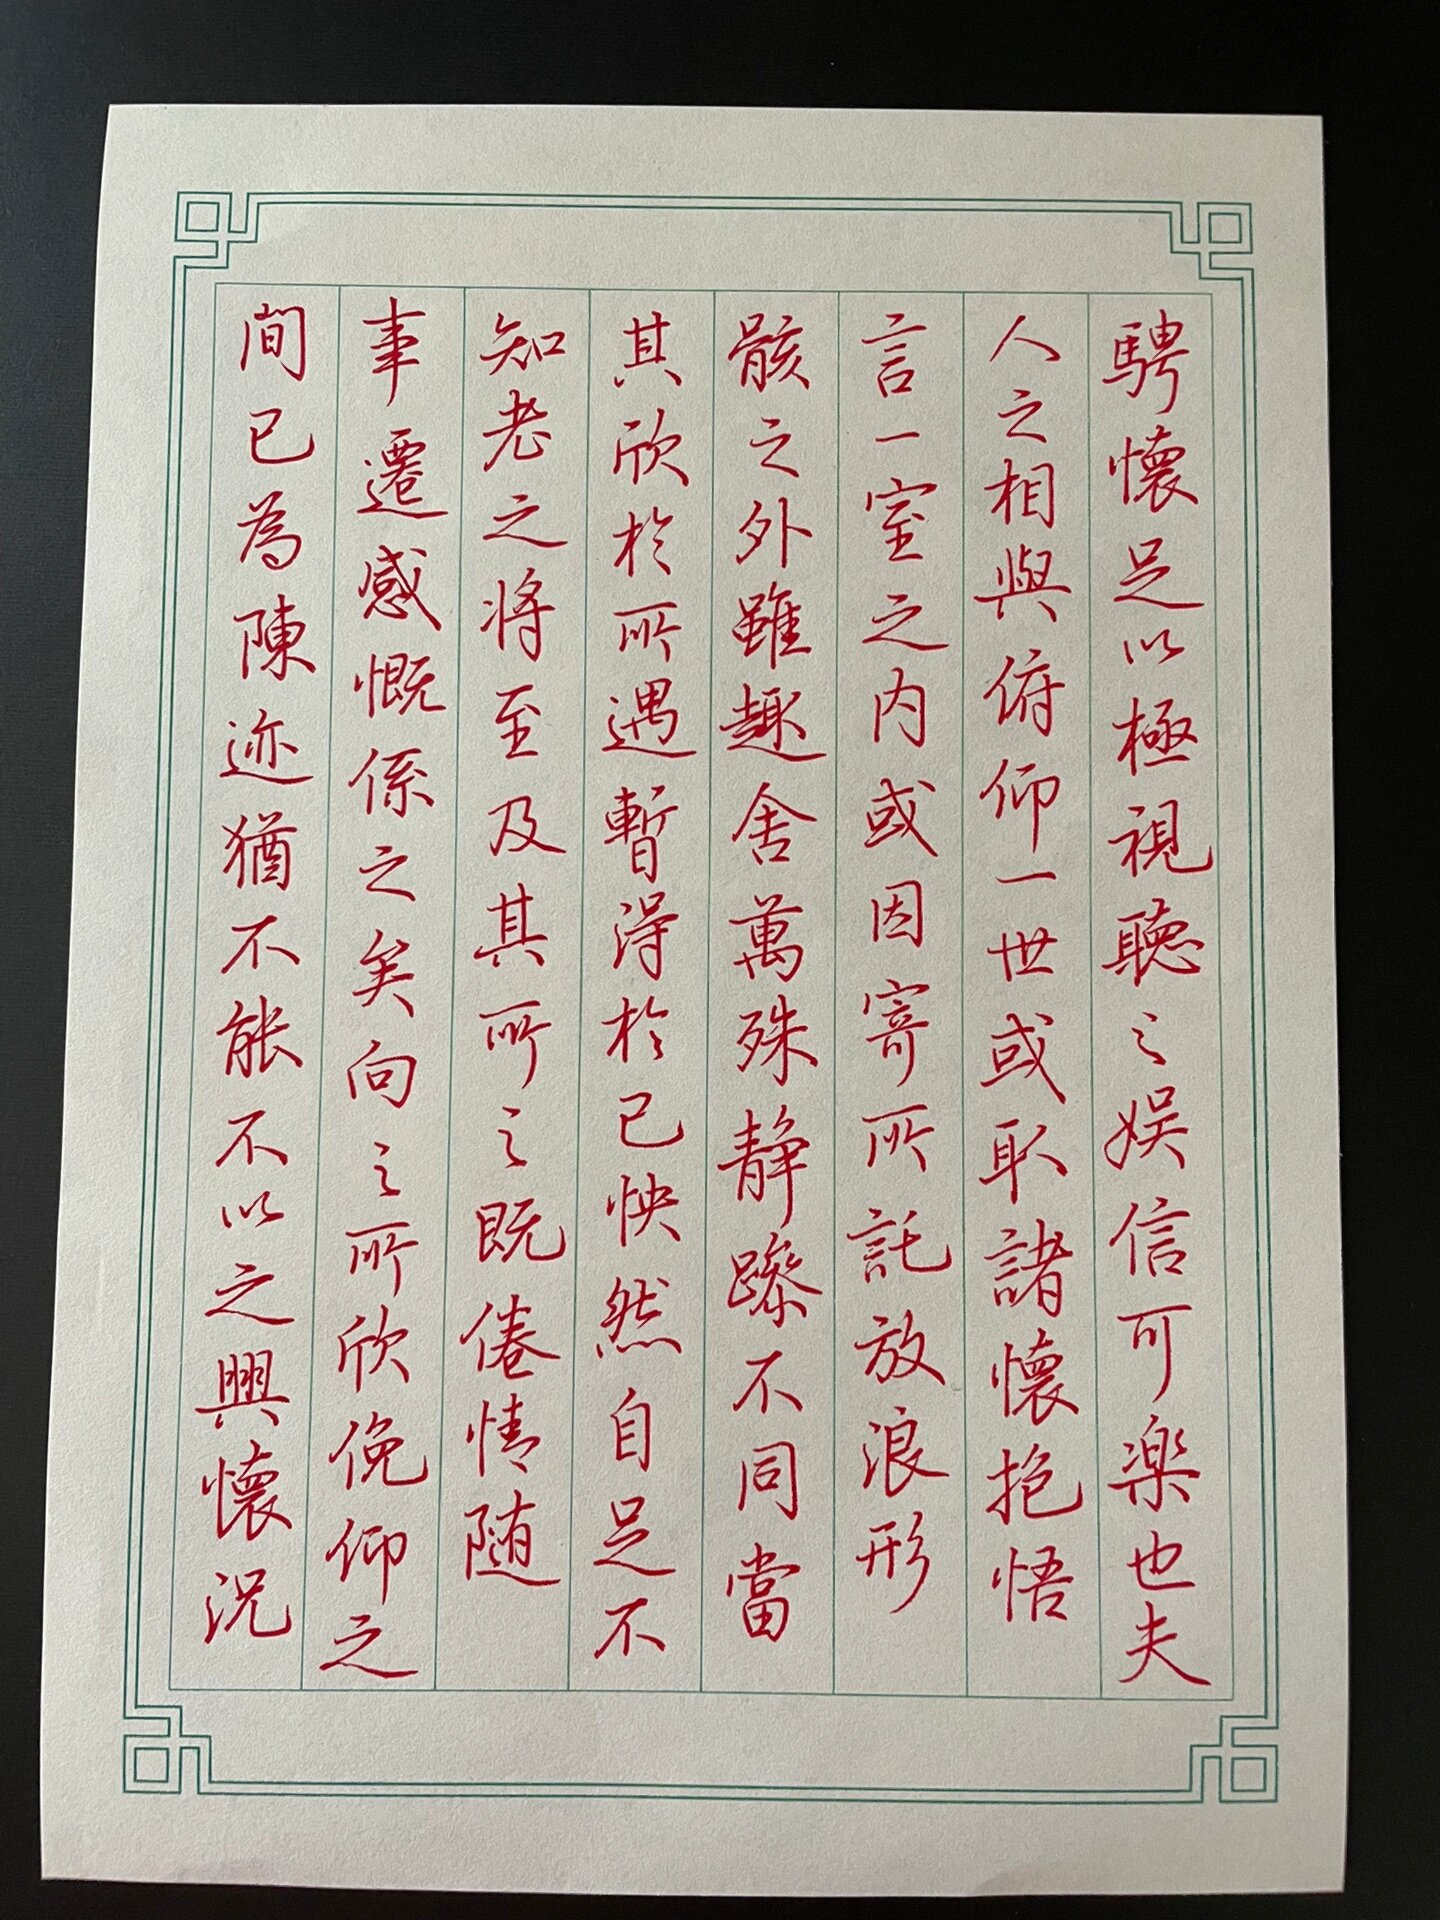 騁懷足以極視聽之娛信可楽也夫
人之相與俯仰一世或取諸懷抱悟
言一室之内或因寄所託放浪形
骸之外雖趣舍萬殊静躁不同當
其欣於所遇暫得於己怏然自足不
知老之将至及其所之既倦情随
事遷感慨係之矣向之所欣俛仰之
間已為陳迹猶不能不以之興懷況